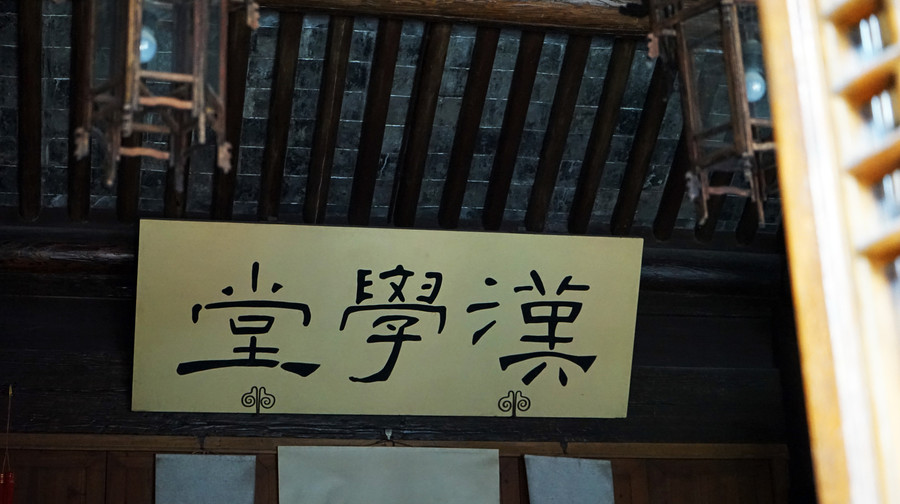 漢學堂